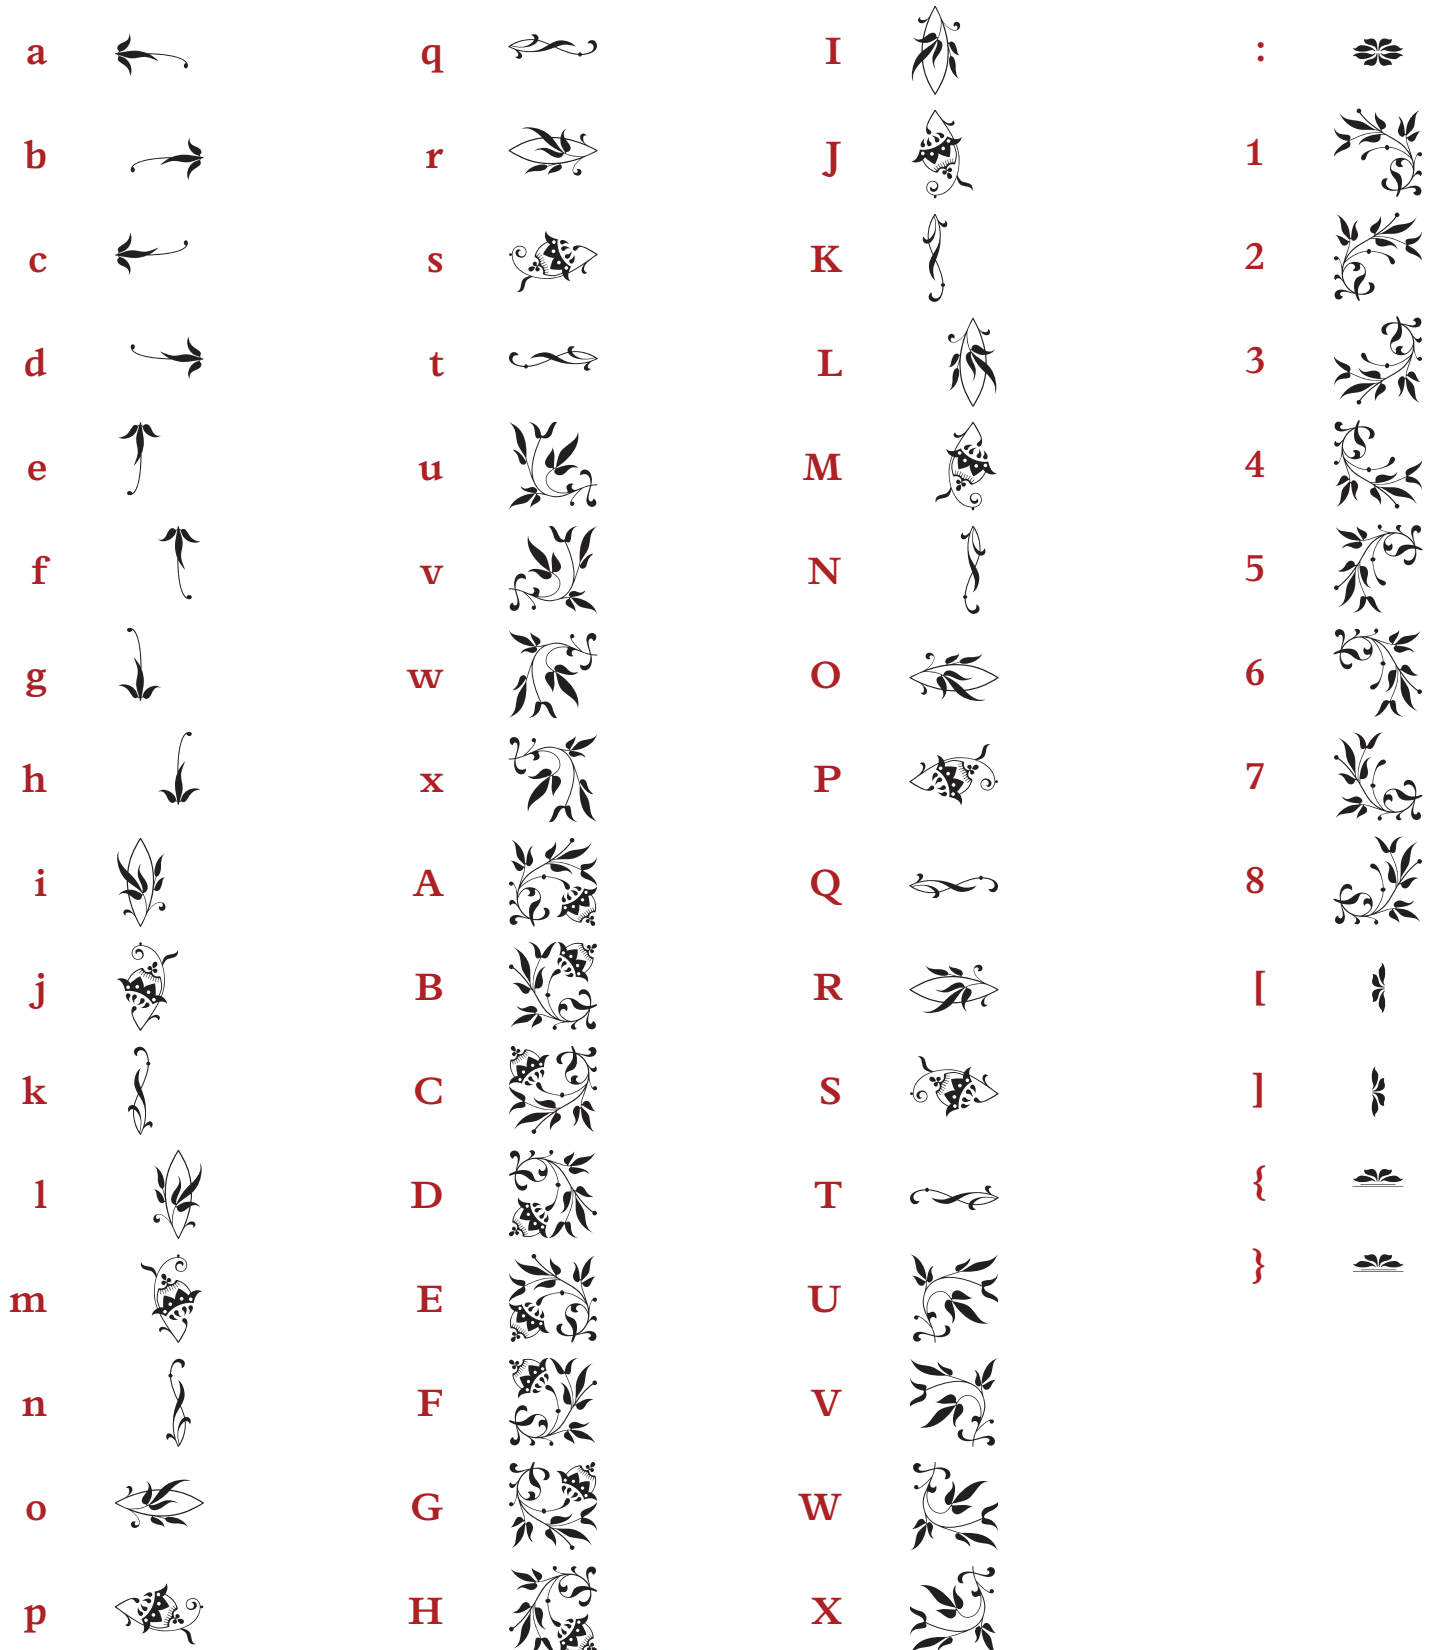 a
b
c
d
e
f
g
h
i
j
k
l
m
n
o
p
q
r
s
t
u
v
w
x
A
B
C
D
E
F
G
H
I
J
K
L
M
N
O
P
Q
R
S
T
U
V
W
X
:
1
2
3
4
5
6
7
8
[
]
{
}